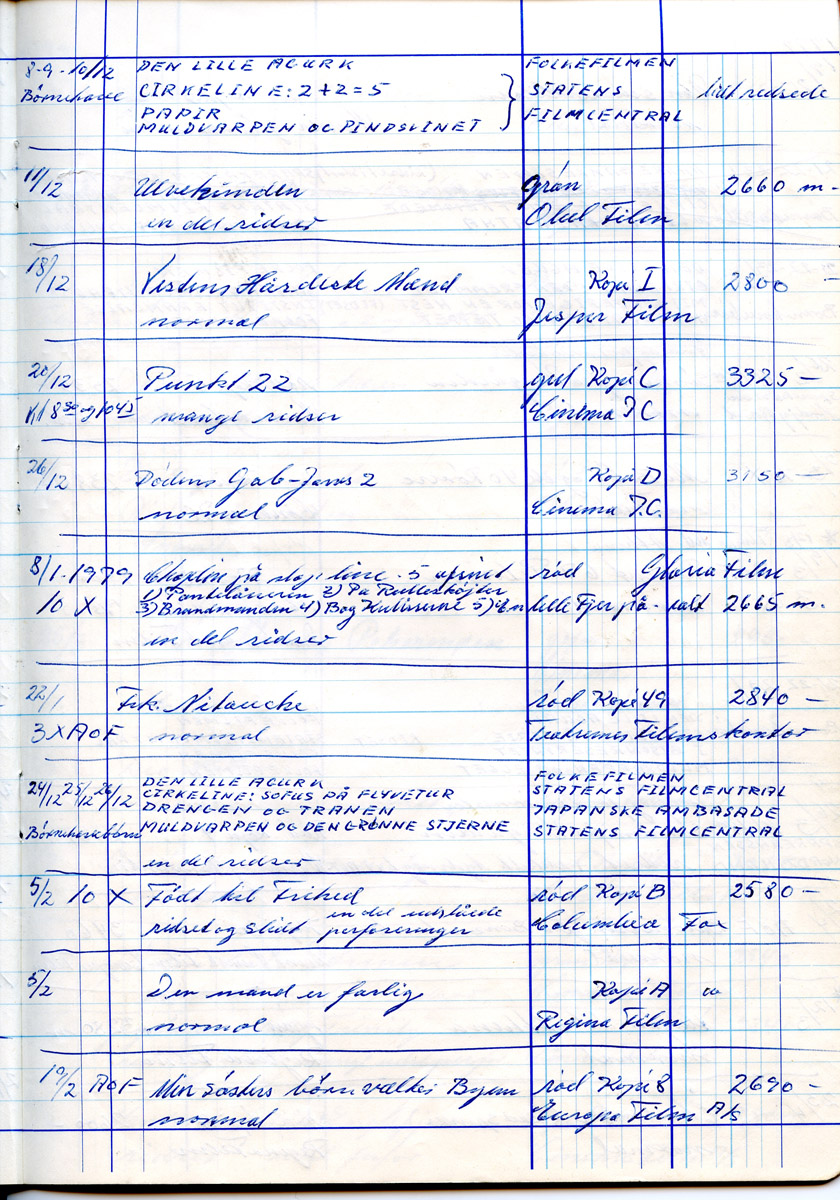 8-9-10/12 DEN LILLE AGURK FOLKEFILMEN
Børnehave CIRKELINE: 2+2=5 STATENS lidt ridsede
PAPIR FILMCENTRAL
MULDVARPEN OG PINDSVINET
11/12 Ulvekvinden grøn 2660 m-
en del ridser Obel Film
18/12 Vestens Hårdeste Mænd Kopi I 2800 -
normal Jesper Film
20/12 Punkt 22 gul Kopi C 3325 -
Kl 8 30 og 10 45 mange ridser Cinema I C
26/12 Dødens Gab - Jaws 2 Kopi D 3150 -
normal Cinema I.C.
8/1-1979 Chaplin på slap line - 5 afsnit rød Gloria Film
10 X 1) Pantelåneren 2) På Rulleskøjter
3) Brandmanden 4) Bag Kulisserne 5) En lille Fyr på - ialt 2665 m.
en del ridser
22/1 Frk. Nitouche rød Kopi 49 2840 -
3 X AOF normal Teatrenes Filmskontor
DEN LILLE AGURK FOLKEFILMEN
24/12 25/12 26/12 CIRKELINE: SOFUS PÅ FLYVETUR STATENS FILMCENTRAL
DRENGEN OG TRANEN JAPANSKE AMBASADE
Børnehavebørn MULDVARPEN OG DEN GRØNNE STJERNE STATENS FILMCENTRAL
en del ridser
5/2 10 X Født til Frihed rød Kopi B 2580 -
ridset og slidt en del udslåede perforeringer Columbia Fox
5/2 Den mand er farlig Kopi A
normal Regina Film
19/2 AOF Min søsters børn vælter Byen rød Kopi 8 2690 -
normal Europa Film A/S